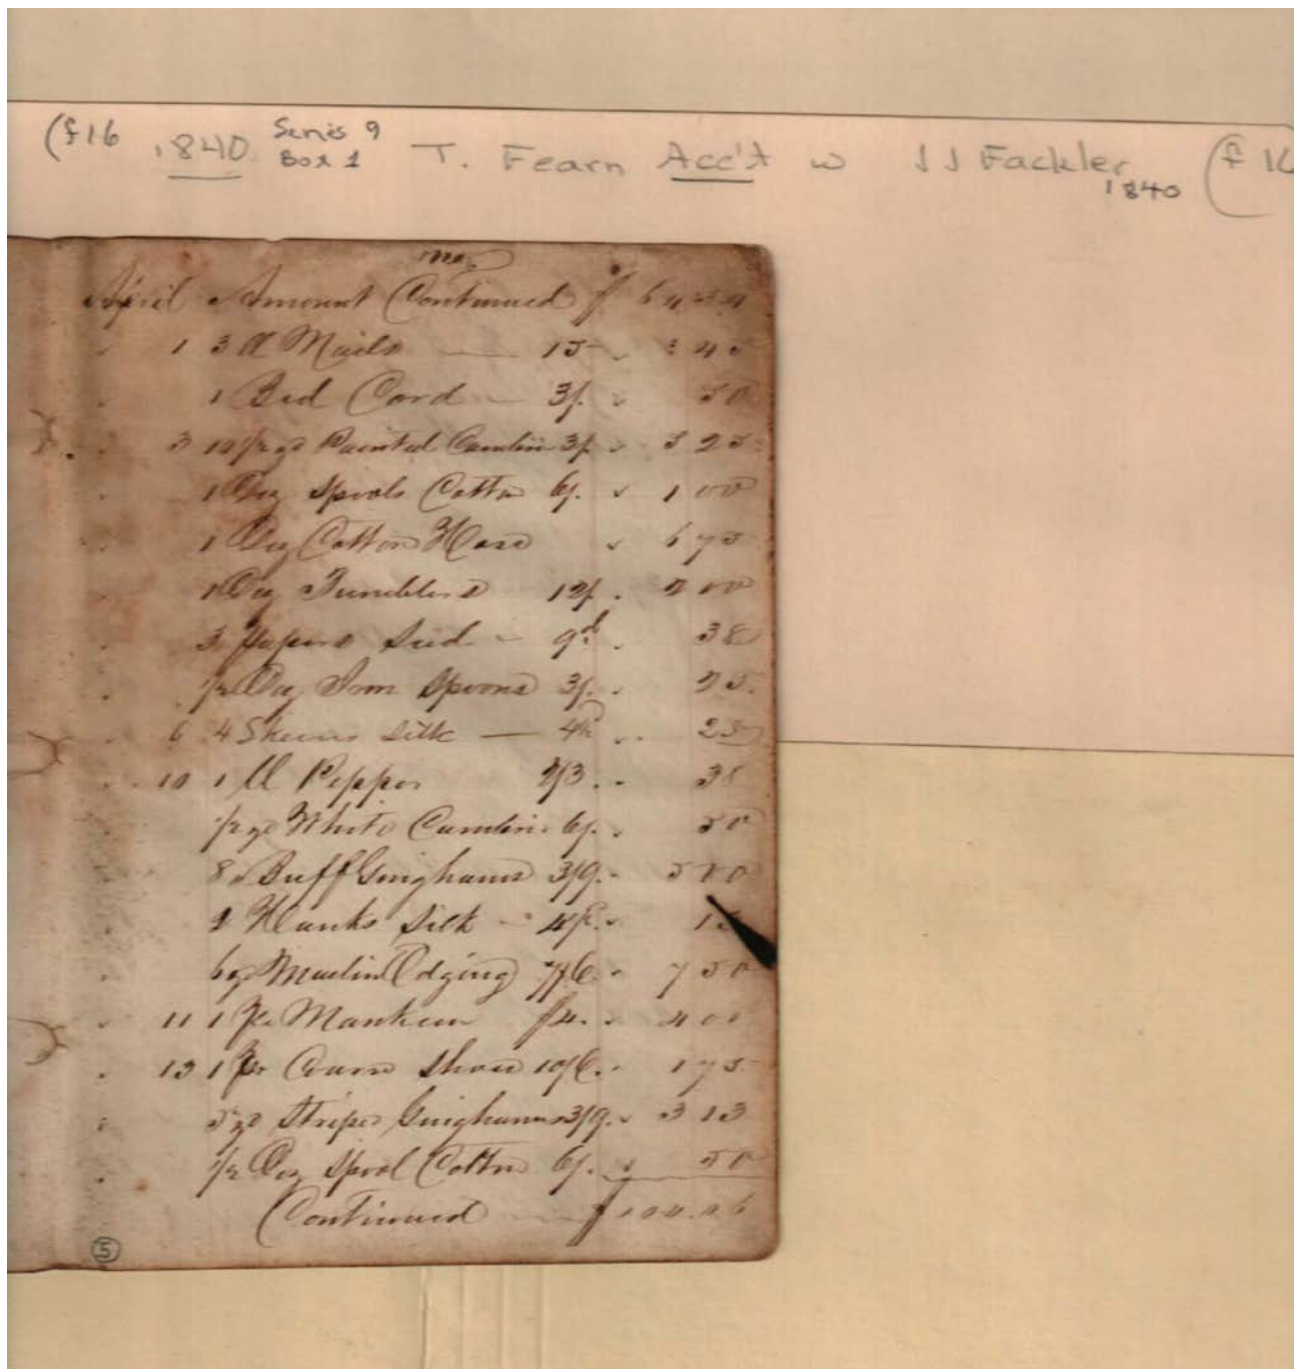 (f16 1840 Series 9 Box 1 T. Fearn Acc't w J J Fackler 1840 (f 16
April Amount Continued $ 64 54
1 3 ll Nails 15 3 45
1 Bed Cord 3/. 50
3 10 1/2 yd Painted Cambric 3/. 5 25
1 Doz Spools Cotton 6/. 1 00
1 Doz Cotton Hose 6 75
1 Doz Tumblers 12/. 2 00
3 Papers Seed 9d 38
1/2 Doz Iron Spoons 3/. 25
6 4 Skeins Silk 4½ 25
10 1 ll Pepper 2/3 38
1/2 yd White Cambric 6/. 50
8 " Buff Ginghams 3/9. 5 00
2 Hanks Silk
6 yd Muslin Edging 7/6 7 50
11 1 Ps Nankeen $4. 4 00
13 1 Pr Coarse Shoes 10/6. 1 75
5 yd Stripe Ginghams 3/9. 3 13
1/2 Doz Spool Cotton 6/. 50
Continued $
5